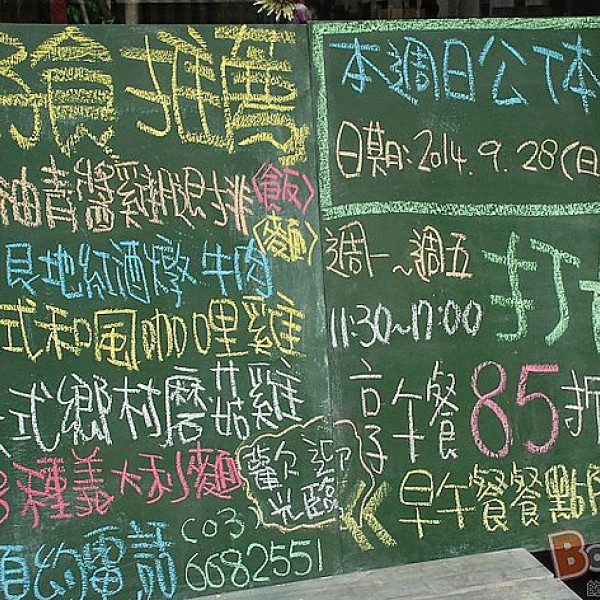 餐推薦
油青醬雞腿排(飯)(麵)
艮地紅酒燉牛肉
式和風咖哩雞
式鄉村磨菇雞
種義大利麵
預約電話(03)
6682551
歡迎光臨
本週日公休
日期:2014.9.28(日
週一~週五
11:30~17:00
打
享午餐85折
早午餐餐點